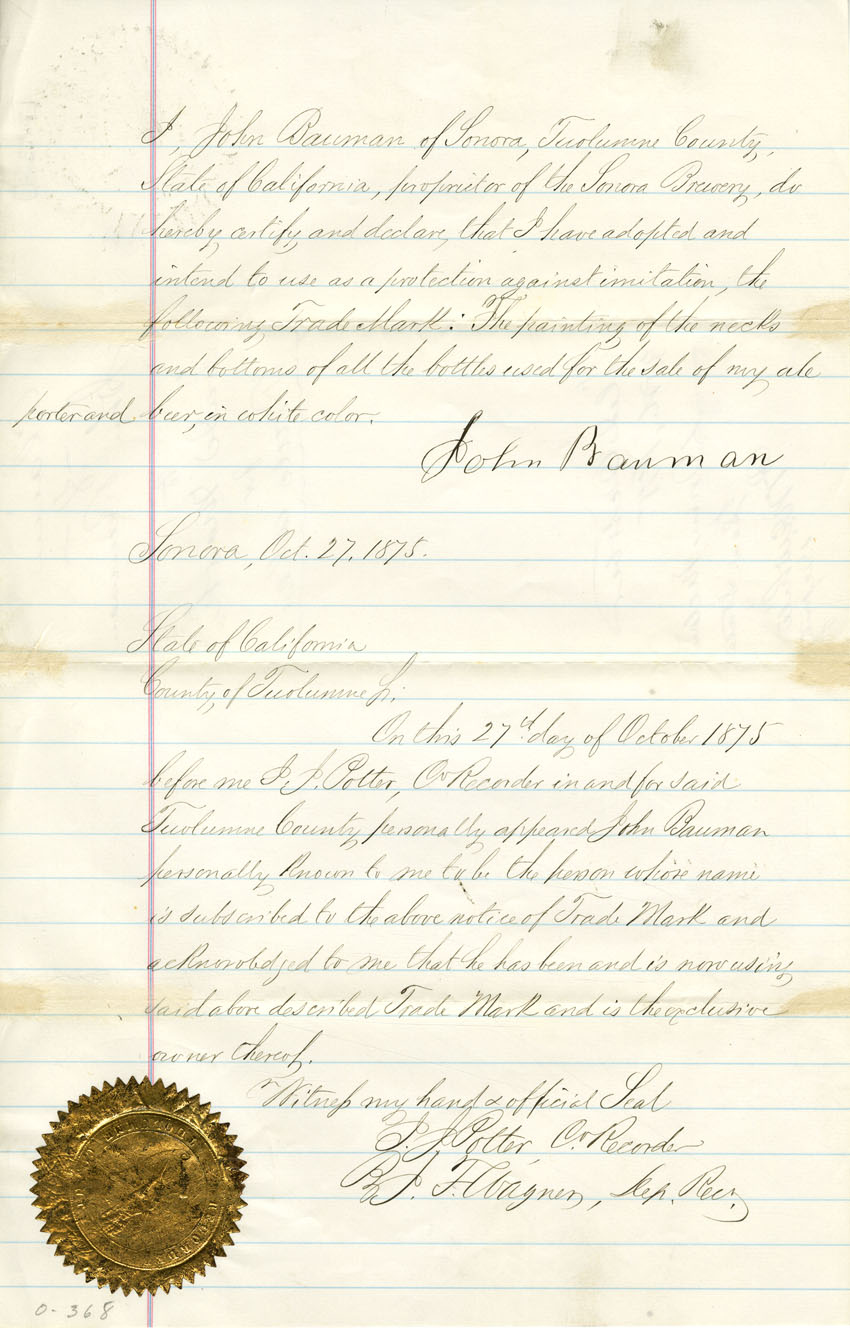 I, John Bauman of Sonora, Tuolumne County,
State of California, proprietor of the Sonora Brewery, do
hereby certify and declare, that I have adopted and
intend to use as a protection against imitation, the
following Trade Mark: The painting of the necks
and bottoms of all the bottles used for the sale of my ale
porter and beer, in white color.
John Bauman
Sonora, Oct. 27, 1875.
State of California
County of Tuolumne
On this 27th day of October 1875
before me Potter, Co Recorder in and for said
Tuolumne County personally appeared John Bauman
personally known to me to be the person whose name
is subscribed to the above notice of Trade Mark and
acknowledged to me that he has been and is now using
said above described Trade Mark and is the exclusive
owner thereof.
Witness my hand & official Seal
Potter, Co. Recorder
Wagner, Dep. Rec.
0-368